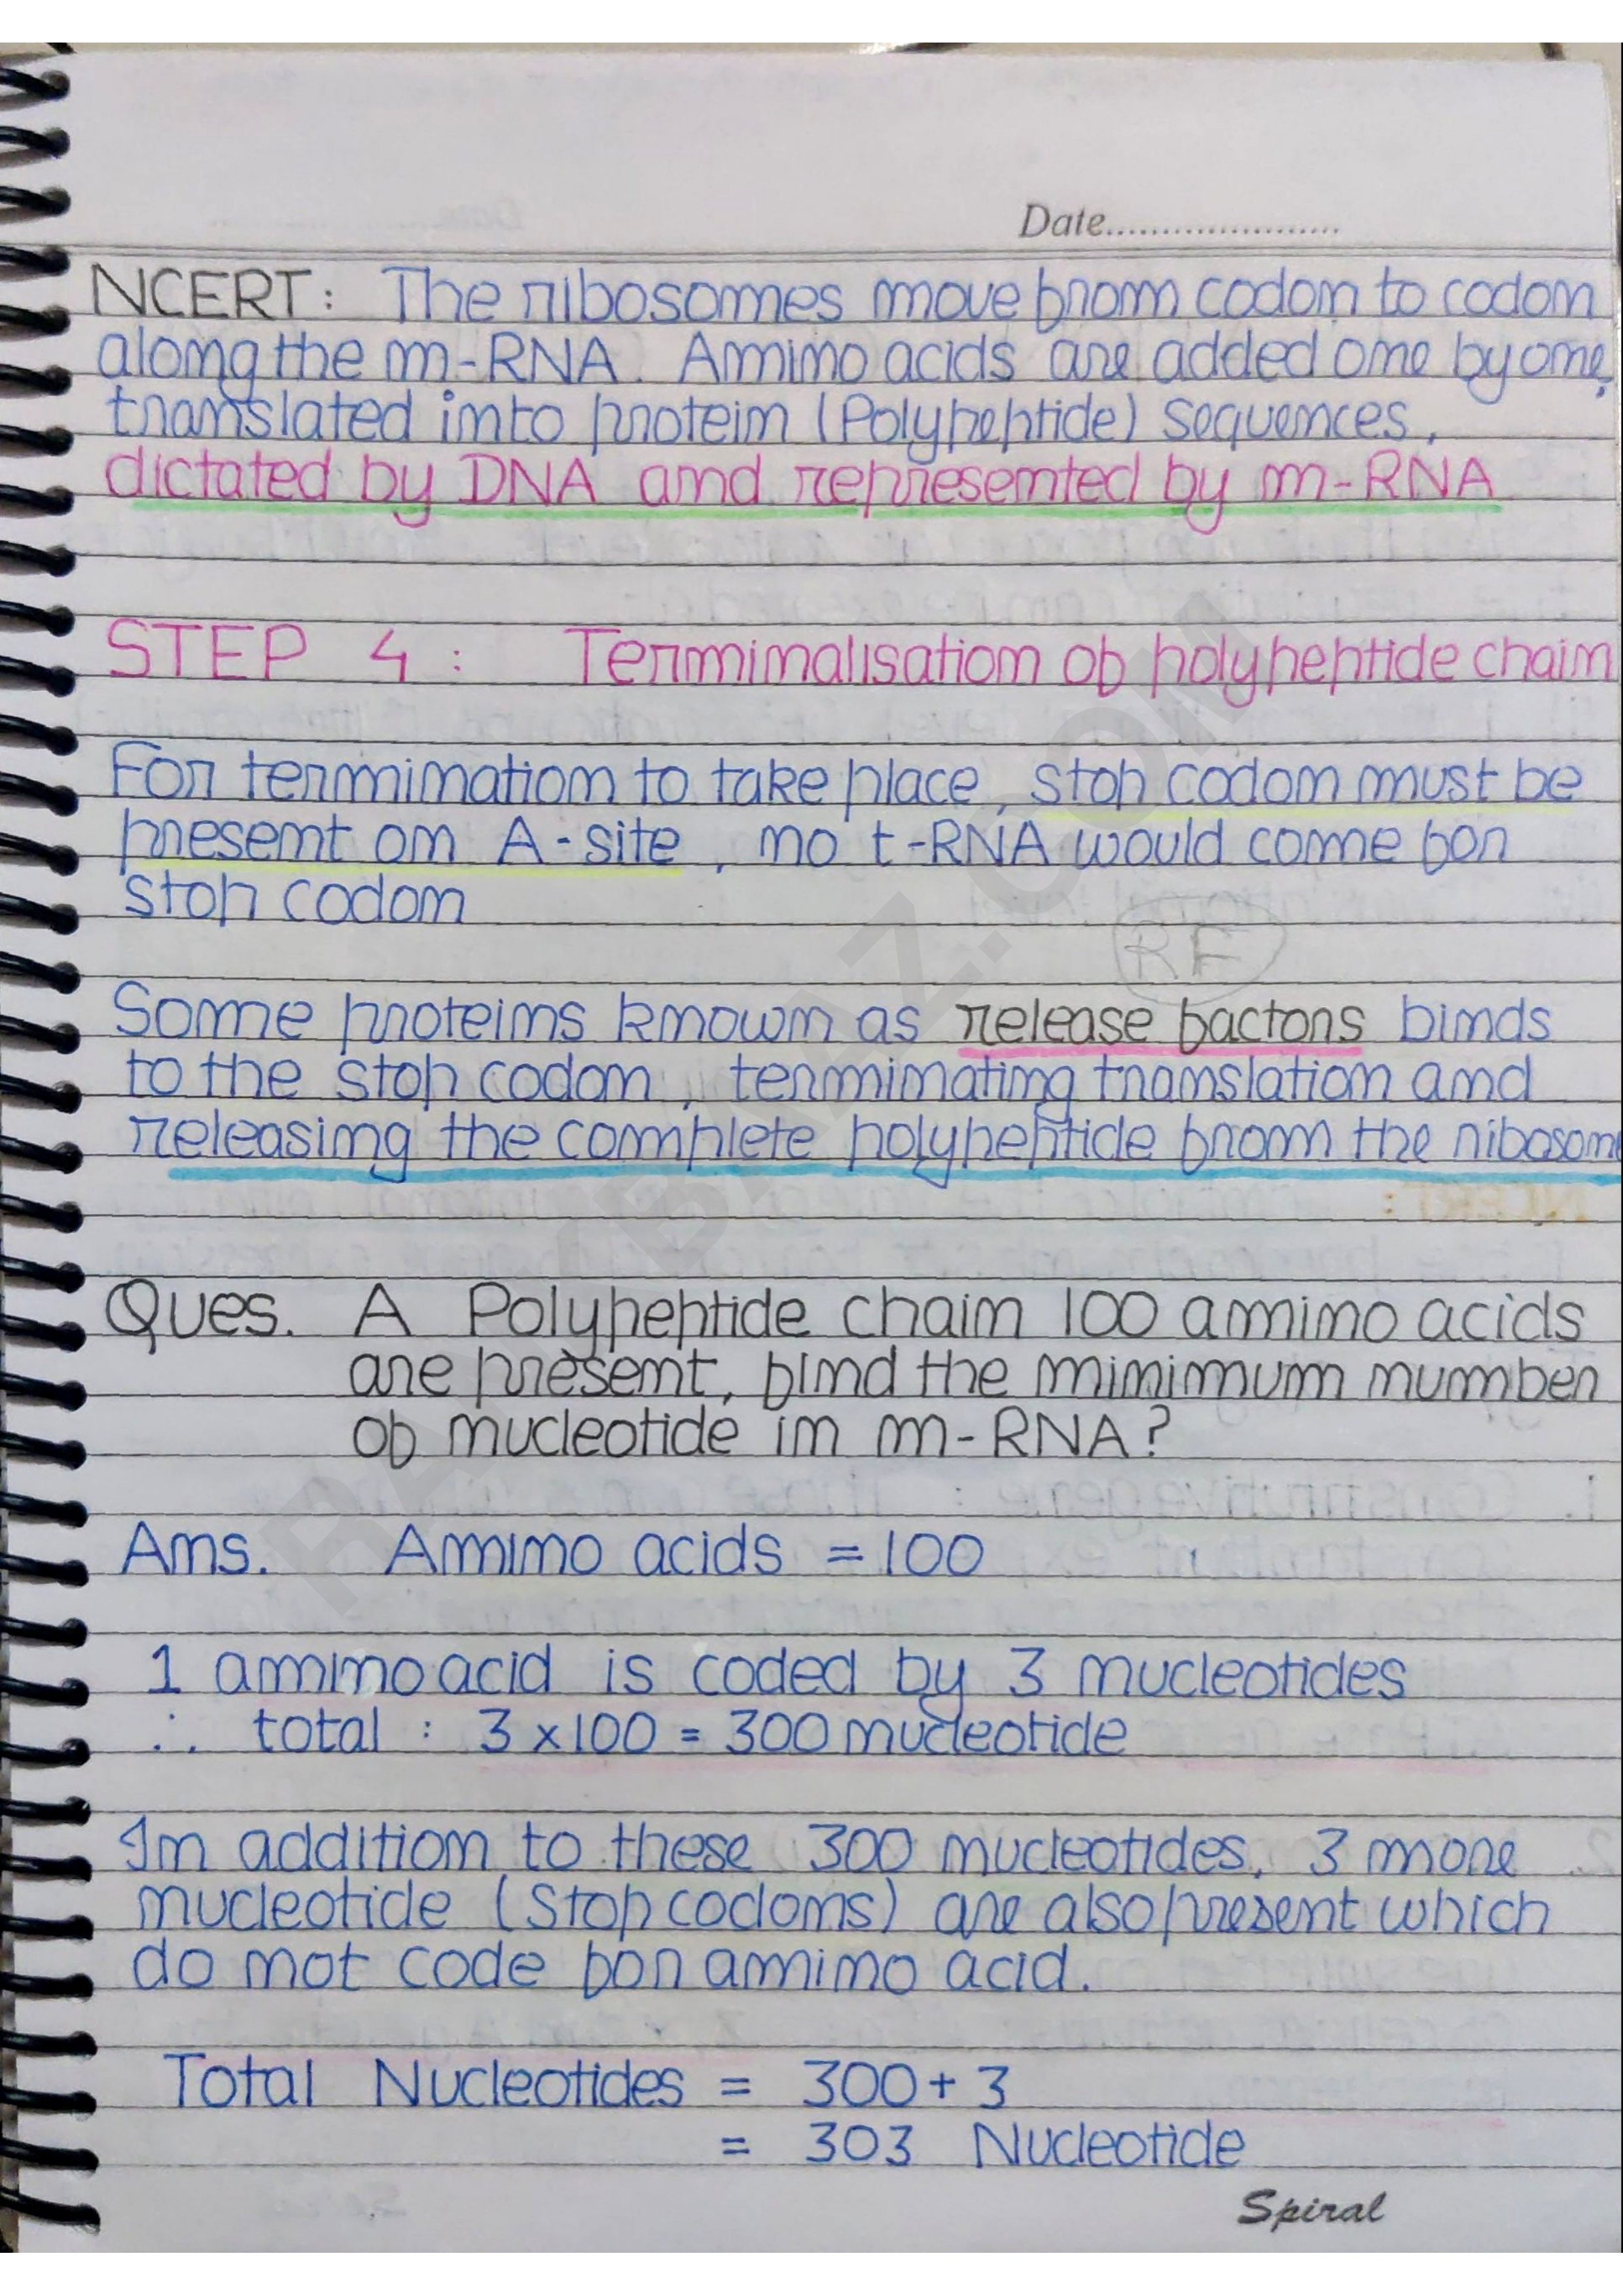 Date.....................
NCERT: The ribosomes move from codon to codon
along the m-RNA. Amino acids are added one by one,
translated into protein (Polypeptide) sequences,
dictated by DNA and represented by m-RNA
STEP 4 : Terminalisation of polypeptide chain
For termination to take place, stop codon must be
present on A-site, no t-RNA would come for
stop codon
RF
Some proteins known as release factors binds
to the stop codon, terminating translation and
releasing the complete polypeptide from the ribosome
Ques. A Polypeptide chain 100 amino acids
are present, find the minimum number
of nucleotide in m-RNA?
Ans. Amino acids = 100
1 amino acid is coded by 3 nucleotides
∴ total : 3 x 100 = 300 nucleotide
In addition to these 300 nucleotides, 3 more
nucleotide (stop codons) are also present which
do not code for amino acid.
Total Nucleotides = 300 + 3
= 303 Nucleotide
Spiral